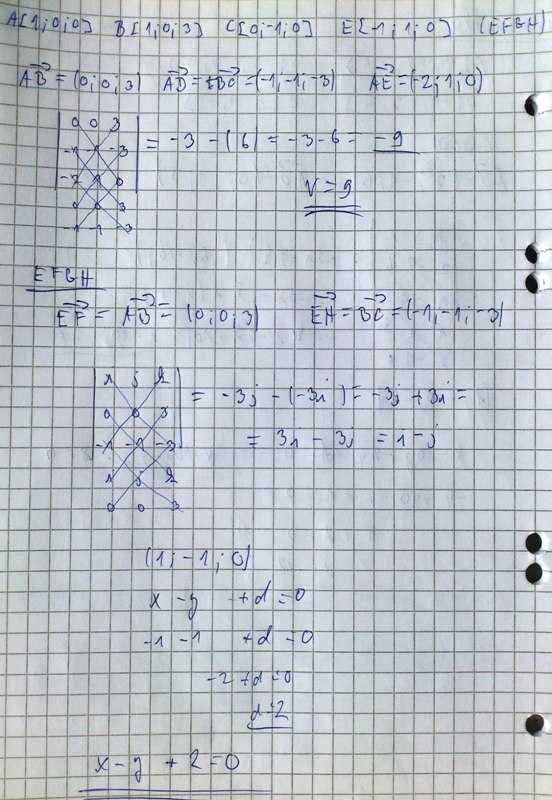 A[1;0;0] B[1;0;3] C[0;-1;0] E[-1;1;0] (EFGH)
AB = (0;0;3) AD = BC = (-1;-1;-3) AE = (-2;1;0)
0 0 3
-1 -1 -3 = -3 - (6) = -3-6 = -9
-2 1 0
0 0 3
-1 -1 -3
V = 9
EFGH
EF = AB = (0;0;3) EH = BC = (-1;-1;-3)
i j k
0 0 3 = -3j - (-3i) = -3j + 3i =
-1 -1 -3
= 3i - 3j = i - j
i j k
0 0 3
(1;-1;0)
x - y + d = 0
-1 -1 + d = 0
-2 + d = 0
d = 2
x - y + 2 = 0